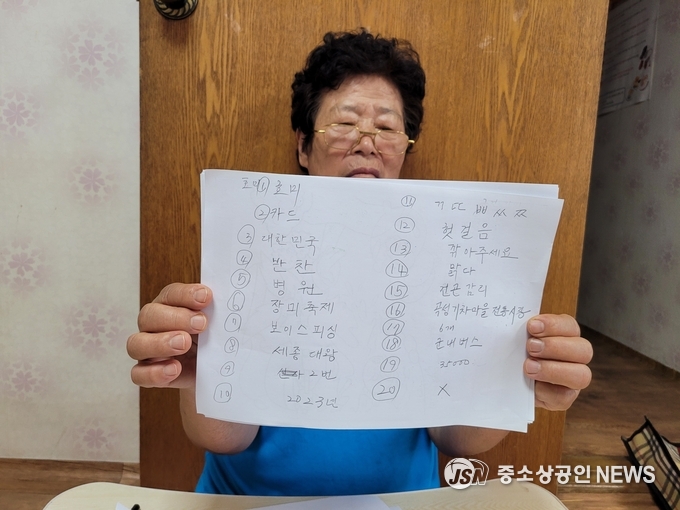 호미 ① 호미
② 카드
③ 대한민국
④ 반찬
⑤ 병원
⑥ 장미축제
⑦ 보이스피싱
⑧ 세종대왕
⑨ 2번
⑩ 2023년
⑪ ㄲ ㄸ ㅃ ㅆ ㅉ
⑫ 헛걸음
⑬ 깎아주세요
⑭ 맑다
⑮ 전근감리
⑯ 곡성기차마을전통시장
⑰ 6개
⑱ 군내버스
⑲ 35000
⑳ X
JSN 중소상공인 NEWS